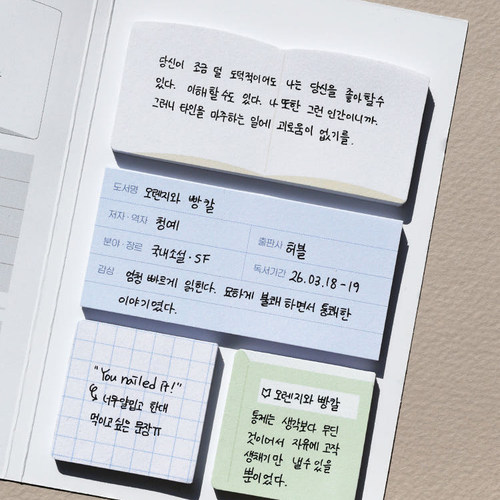 당신이 조금 덜 도덕적이어도 나는 당신을 좋아할 수
있다. 이해할 수도 있다. 나 또한 그런 인간이니까.
그러니 타인을 마주하는 일에 괴로움이 없기를.
도서명 오렌지와 빵칼
저자·역자 청예
출판사 허블
분야·장르 국내소설·SF
독서기간 26.03.18-19
감상 엄청 빠르게 읽힌다. 묘하게 불쾌하면서 통쾌한
이야기였다.
"You nailed it!"
너무 얄밉고 한대
먹이고 싶은 문장ㅠ
오렌지와 빵칼
통제는 생각보다 무딘
것이어서 자유에 고작
생채기만 낼 수 있을
뿐이었다.